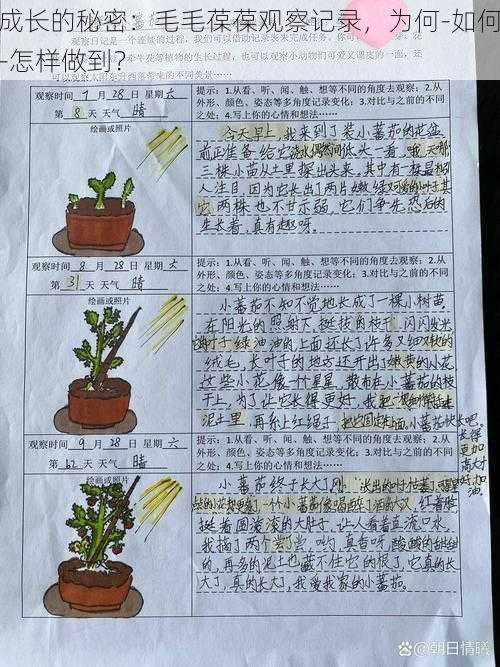 成长的秘密：毛毛葆葆观察记录，为何-如何
-怎样做到？
观察日记是一个连续的过程，我们可以借助记录表来完成任务。你可
观察时间 7 月 28 日 星期 六
第 8 天 天气 晴
绘画或照片
提示：1.从看、听、闻、触、想等不同的角度去观察；2.从
外形、颜色、姿态等多角度记录变化；3.对比与之前的不同
之处；4.写上你的心情和想法……
今天早上，我来到了装小蕃茄的花盆
前正准备给它浇水偶然间低头一看，哦天哪
三棵小苗从土里探出头来。其中有一棵最引
人注目，因为它长出了两片嫩绿对称的叶子其
它两株也不甘示弱，它们争先恐后的
生长着，真有趣呀。
观察时间 8 月 28 日 星期 六
第 31 天 天气 晴
绘画或照片
提示：1.从看、听、闻、触、想等不同的角度去观察；2.从
外形、颜色、姿态等多角度记录变化；3.对比与之前的不同
之处；4.写上你的心情和想法……
小蕃茄不知不觉地长成了一棵小树苗
在阳光的照射下，挺枝肉枝干，闪闪发光
绿油油的上面还长了许多又细又软的
绒毛，长叶子的地方还开出了嫩黄的小花
这些小花像一个星星，散布在小蕃茄的枝
干上，为了让它长得更好，我把
泥土里，再系上红绳子，把它固定 小蕃茄快长吧
去得更加高大
加油。
观察时间 9 月 28 日 星期 六
第 62 天 天气 晴
绘画或照片
提示：1.从看、听、闻、触、想等不同的角度去观察；2.从
外形、颜色、姿态等多角度记录变化；3.对比与之前的不同
之处；4.写上你的心情和想法……
小蕃茄终于长大了
一个小蕃茄像喝醉了酒的人，红着脸
挺着圆滚滚的大肚子，让人看着直流口水，
我摘了两个尝尝，哟，真香呀酸酸的甜甜
的，再多的泥土也藏不住它的根了，它真的长
大了，真的长大了，我爱我家的小蕃茄。
@朝日情曦